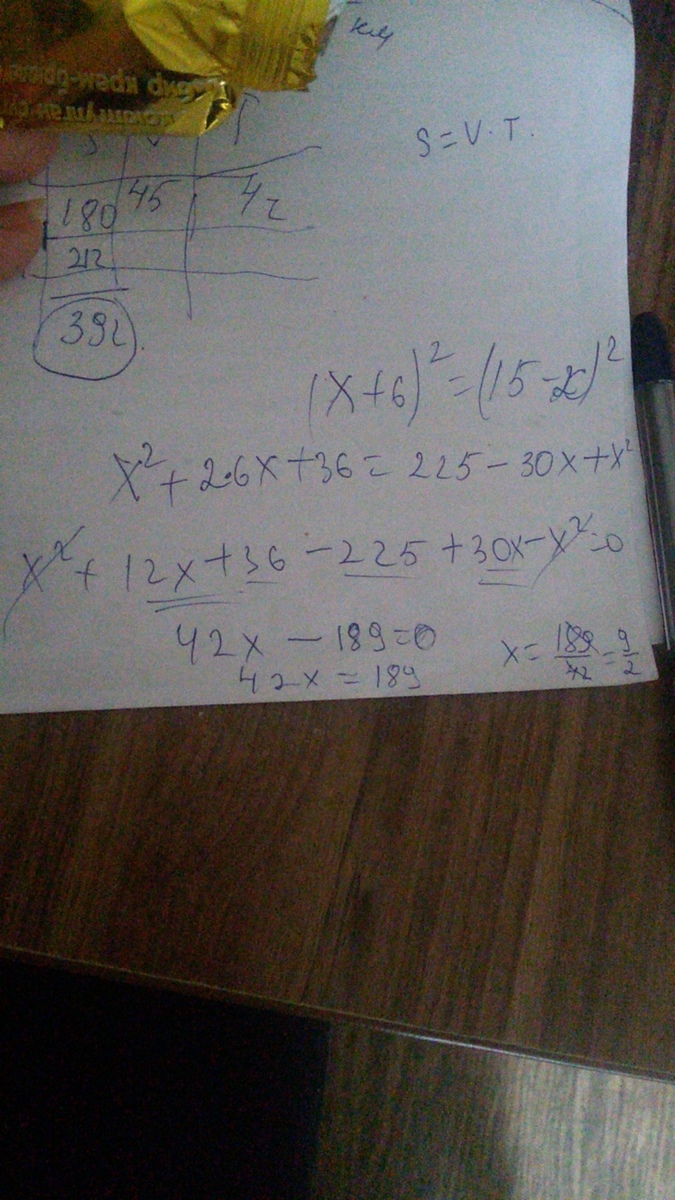 км
S = V · T.
180 45 4г
212
392.
(x+6)² = (15-x)²
x² + 2·6x + 36 = 225 - 30x + x²
x² + 12x + 36 - 225 + 30x - x² = 0
42x - 189 = 0
42x = 189
x = 189/42 = 9/2